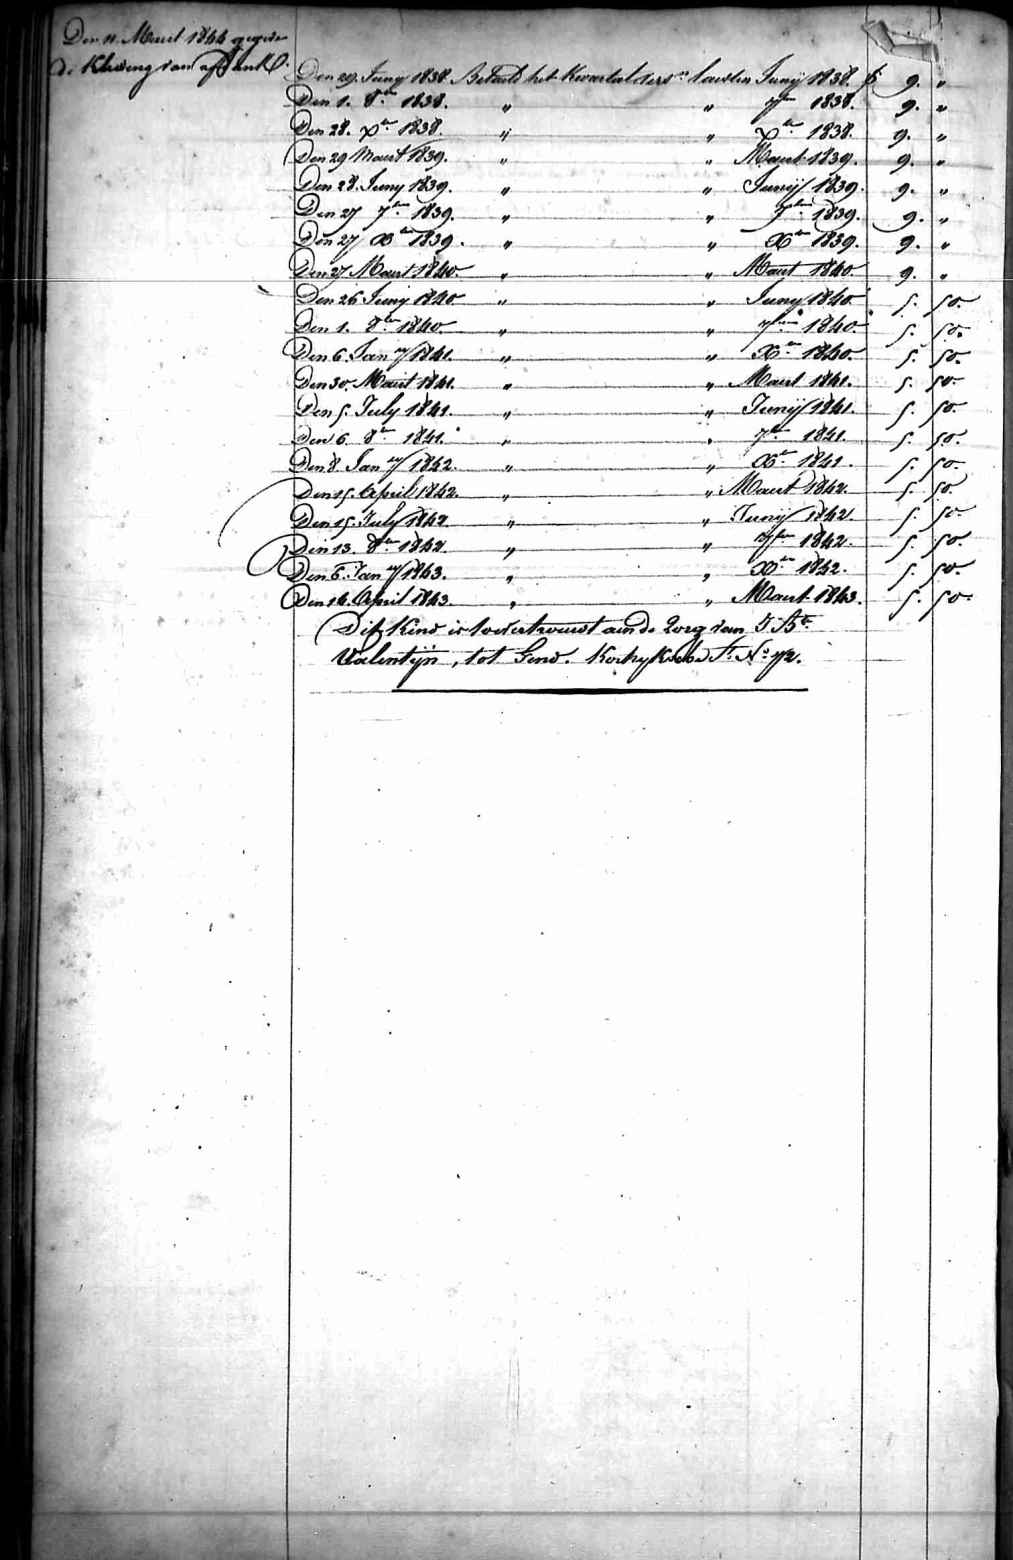 Den 11. Maert 1844 gegeven
de Kleding van afdank
Den 29. Juny 1838. Betaeld het Kwartael vers.n laesten Junij 1838. f 9. "
Den 1. 8.ber 1838. " " 7.ber 1838. 9. "
Den 28. X.ber 1838. " " X.ber 1838. 9. "
Den 29 Maert 1839. " " Maert 1839. 9. "
Den 28. Juny 1839. " " Junij 1839. 9. "
Den 27 7.ber 1839. " " 7.ber 1839. 9. "
Den 27 X.ber 1839. " " X.ber 1839. 9. "
Den 27 Maert 1840 " " Maert 1840. 9. "
Den 26 Juny 1840 " " Juny 1840 5. 50.
Den 1. 8.ber 1840. " " 7.ber 1840. 5. 50.
Den 6. Jan.ry 1841. " " X.ber 1840 5. 50.
Den 30. Maert 1841. " " Maert 1841. 5. 50.
Den 5. July 1841. " " Junij 1841. 5. 50.
Den 6. 8.ber 1841. " " 7.ber 1841. 5. 50.
Den 8. Jan.ry 1842. " " X.ber 1841. 5. 50.
Den 15. April 1842. " " Maert 1842. 5. 50.
Den 15. July 1842. " " Junij 1842. 5. 50.
Den 13. 8.ber 1842. " " 7.ber 1842. 5. 50.
Den 6. Jan.ry 1843. " " X.ber 1842. 5. 50.
Den 14. April 1843. " " Maert 1843. 5. 50.
Dit Kind is toevertrouwt aen de Zorg van J. B.te
Valentijn, tot Gend. Kortryksche St. N.o 72.